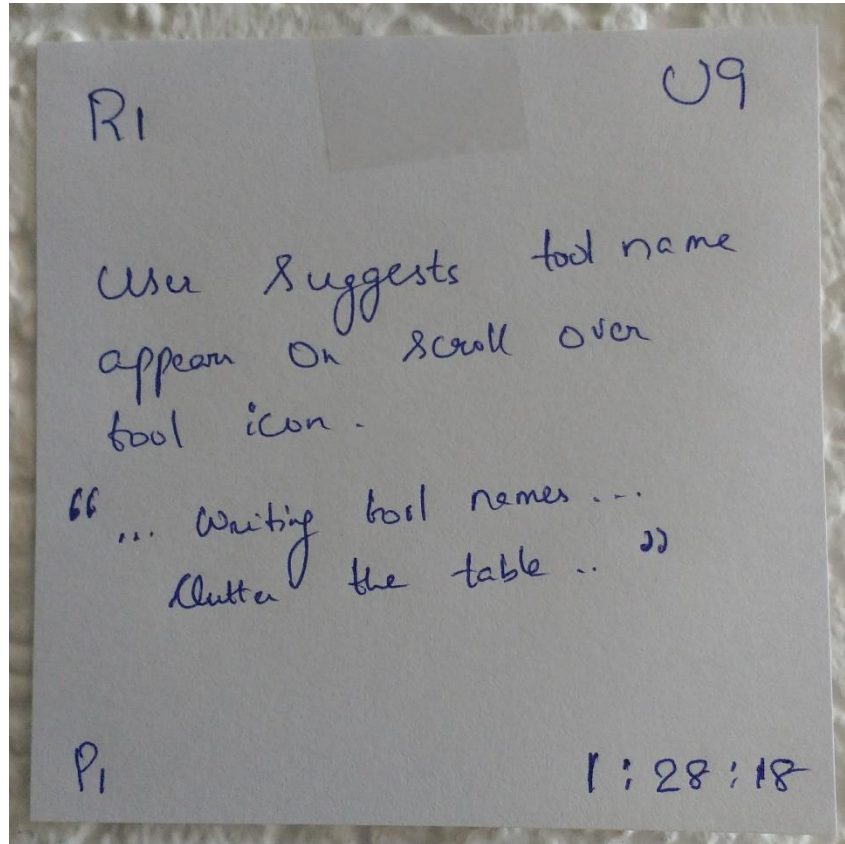 R1
U9
User suggests tool name
appears on scroll over
tool icon.
“... Writing tool names ...
Clutter the table .. ”
P1
1:28:18